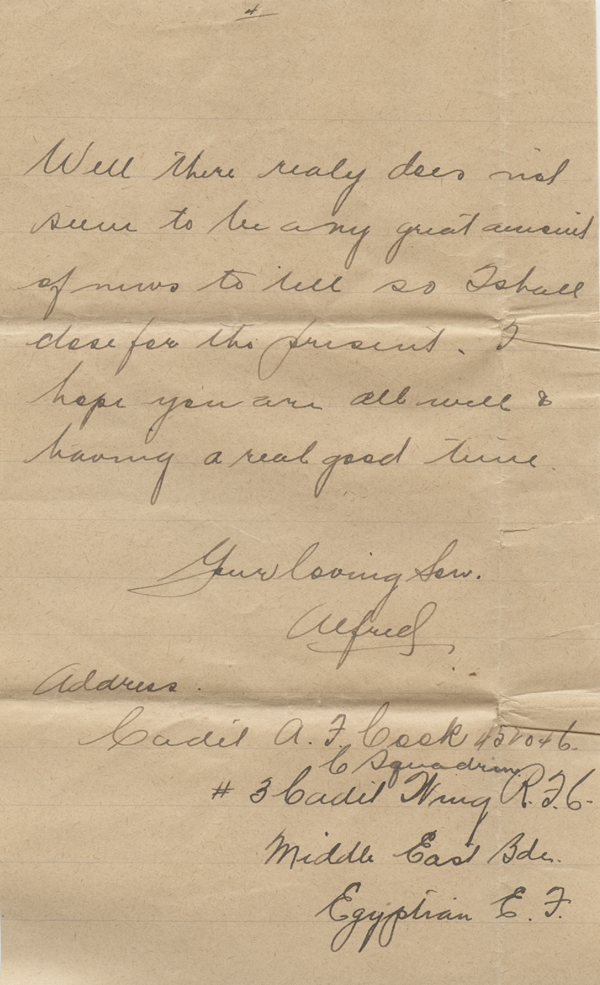 4
Well there realy does not
seem to be any great amount
of news to tell so I shall
close for the present. I
hope you are all well &
having a real good time.
Your loving Son.
Alfred
Address.
Cadet A. F. Cook
C Squadron
# 3 Cadet Wing R.F.C.
Middle East Bde.
Egyptian E. F.